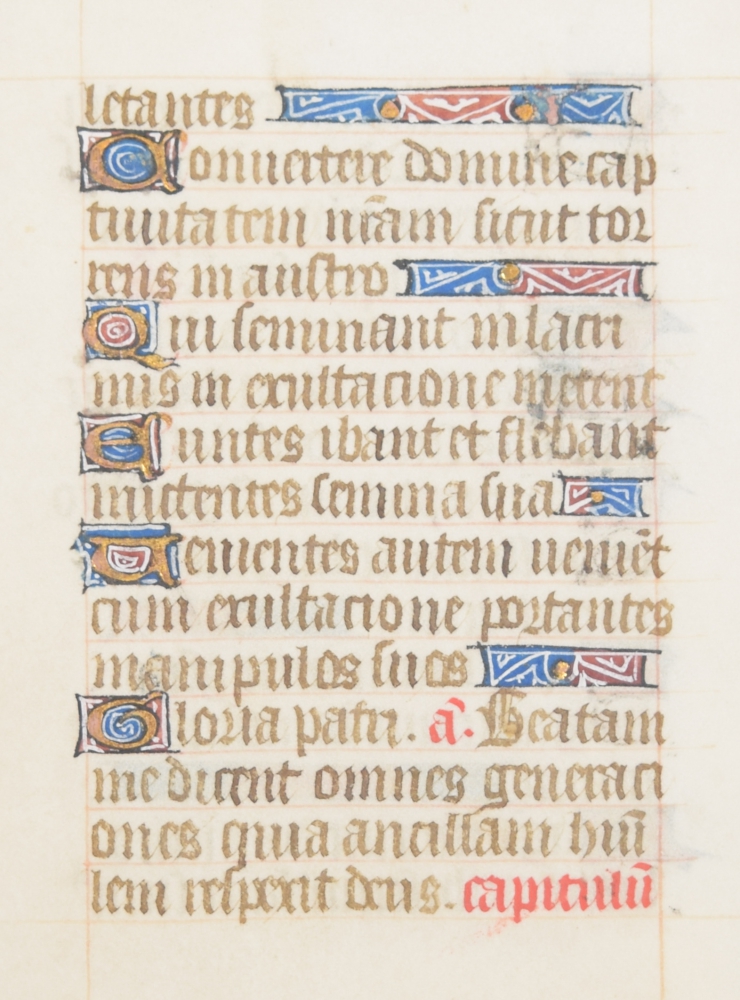 letantes
Conuertere domine cap
tiuitatem nr̄am sicut tor
rens in austro
Qui seminant in lacri
mis in exultacione metent
Euntes ibant et flebant
mittentes semina sua
Uenientes autem ueniēt
cum exultacione portantes
manipulos suos
Gloria patri. a͞. Beatam
me dicent omnes generaci
ones quia ancillam hūi
lem respexit deus. capitulū